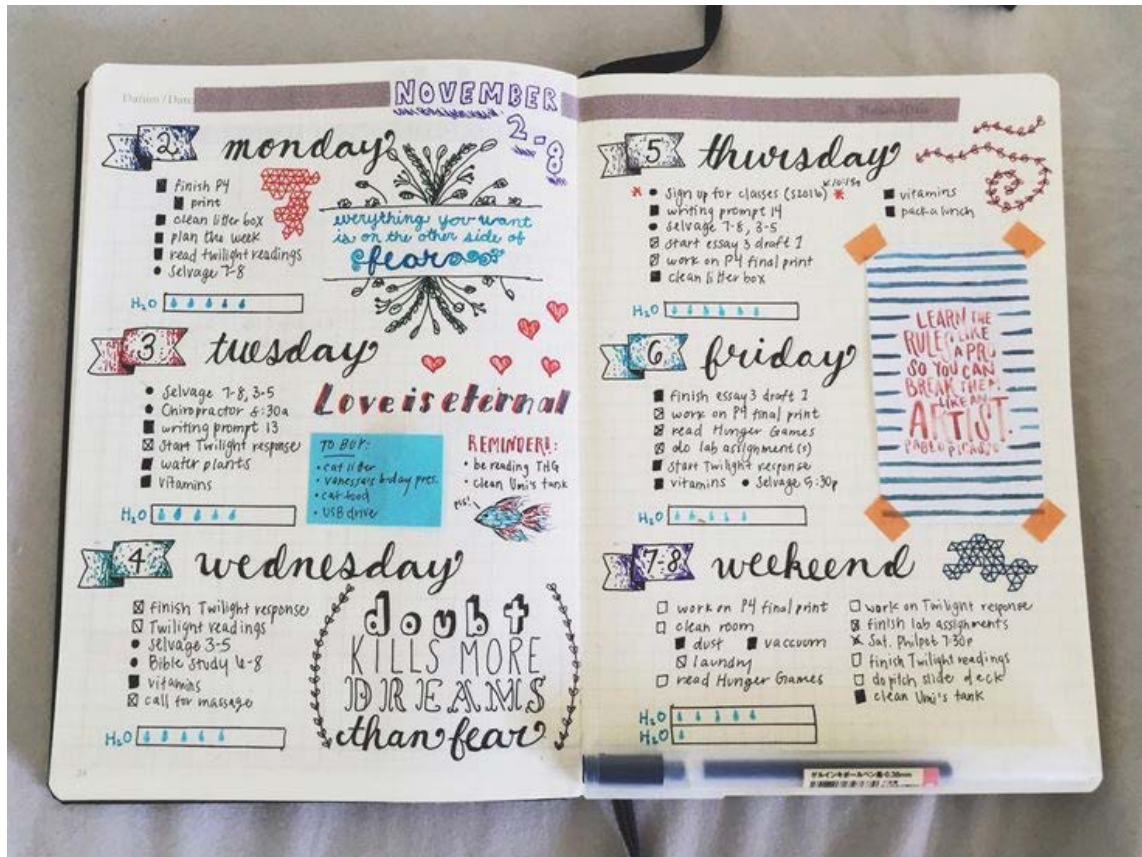 Datum / Date
NOVEMBER
2-8
2 monday
finish P4
print
clean litter box
plan the week
read twilight readings
Selvage 7-8
H2O
everything you want
is on the other side of
fear
3 tuesday
Selvage 7-8, 3-5
Chiropractor 8:30a
writing prompt 13
start Twilight response
water plants
vitamins
H2O
Love is eternal
TO BUY:
• cat litter
• vanessa's b-day pres.
• cat food
• USB drive
REMINDER!:
• be reading THG
• clean Umi's tank
pls!
4 wednesday
finish Twilight response
Twilight readings
Selvage 3-5
Bible Study 6-8
vitamins
call for massage
H2O
doubt
KILLS MORE
DREAMS
than fear
5 thursday
Sign up for classes (S2016)
writing prompt 14
Selvage 7-8, 3-5
start essay 3 draft 1
work on P4 final print
clean litter box
vitamins
pack a lunch
H2O
6 friday
finish essay 3 draft 1
work on P4 final print
read Hunger Games
do lab assignment(s)
start Twilight response
vitamins • Selvage 5:30p
H2O
LEARN THE
RULES LIKE
A PRO
SO YOU CAN
BREAK THEM
LIKE AN
ARTIST.
PABLO PICASSO
7-8 weekend
work on P4 final print
clean room
dust vaccuum
laundry
read Hunger Games
work on Twilight response
finish lab assignments
Sat. Philpot 7:30p
finish Twilight readings
do pitch slide deck
clean Umi's tank
H2O
H2O
ゲルインキボールペン 0.38mm